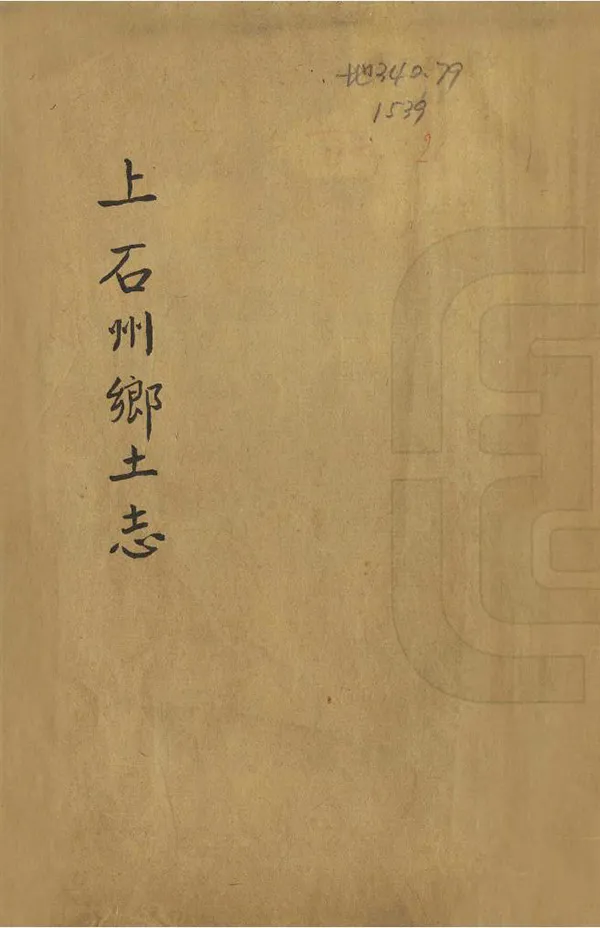 地340.79
1539
2
上石州鄉土志